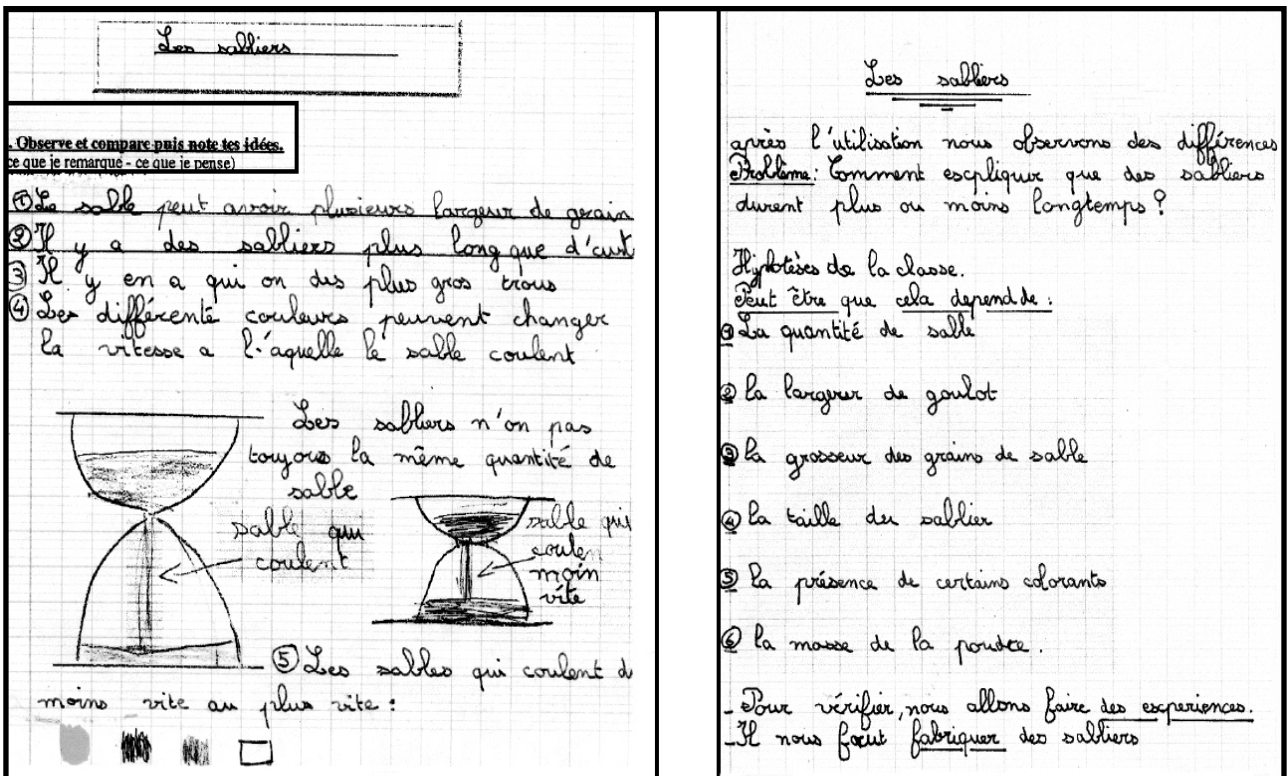 Les sabliers
. Observe et compare puis note tes idées.
ce que je remarque - ce que je pense)
① Le sable peut avoir plusieurs largeur de grain
② Il y a des sabliers plus long que d'aut
③ Il y en a qui on des plus gros trous
④ Les différente couleurs peuvent changer
la vitesse a l'aquelle le sable coulent
Les sabliers n'on pas
toujours la même quantité de
sable
sable qui
coulent
sable qui
coulen
moin
vite
⑤ Les sables qui coulent d
moins vite au plus vite :
Les sabliers
après l'utilisation nous observons des différences
Problème : Comment escpliquer que des sabliers
durent plus ou moins longtemps ?
Hypotèses de la classe.
Peut être que cela depend de :
① La quantité de sable
② la largeur de goulot
③ la grosseur des grains de sable
④ la taille du sablier
⑤ la présence de certains colorants
⑥ la masse de la poudre.
- Pour vérifier, nous allons faire des experiences.
- Il nous faut fabriquer des sabliers